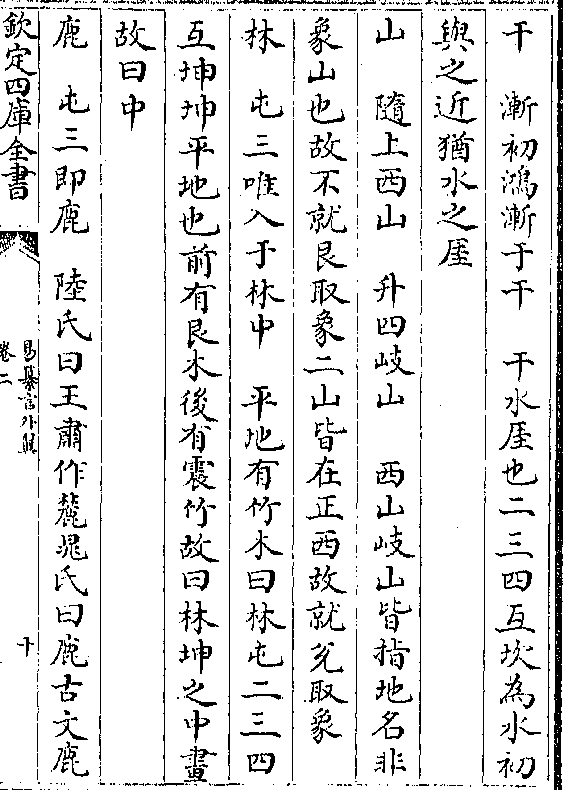 干　漸初鴻漸于干　干水厓也二三四互坎為水初
與之近猶水之厓
山　隨上西山　升四岐山　西山岐山皆指地名非
象山也故不就艮取象二山皆在正西故就兌取象
林　屯三唯入于林中　平地有竹木曰林屯二三四
互坤坤平地也前有艮木後有震竹故曰林坤之中畫
故曰中
鹿　屯三即鹿　陸氏曰王肅作麓晁氏曰鹿古文鹿
欽定四庫全書
易纂言外翼
卷二
十